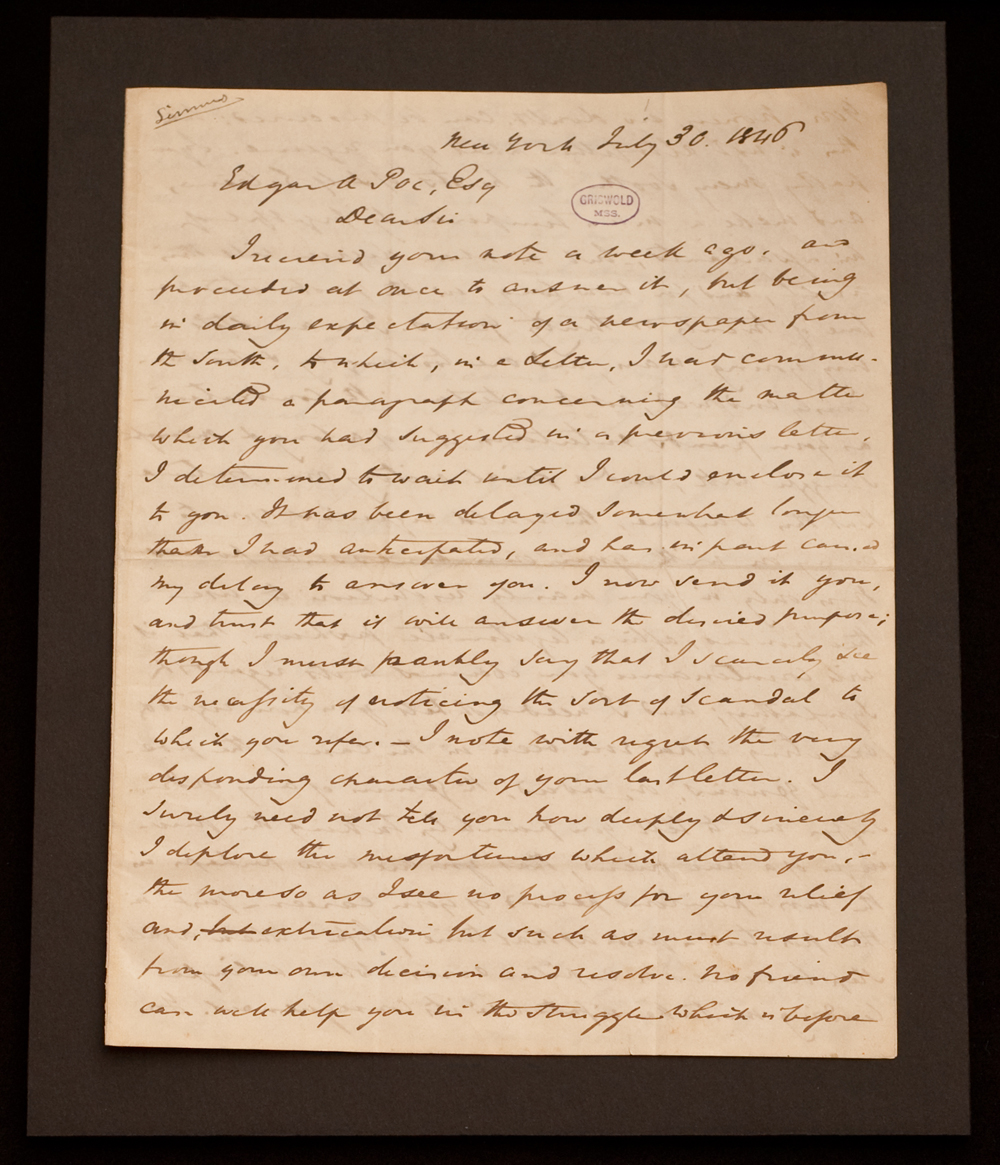 Simms
New York July 30. 1846
Edgar A Poe, Esq
GRISWOLD
MSS.
Dear Sir
I received your note a week ago, and
proceeded at once to answer it, but being
in daily expectation of a newspaper from
the South, to which, in a Letter, I had commu-
nicated a paragraph concerning the matter
which you had suggested in a previous letter,
I determined to wait until I could enclose it
to you. It has been delayed somewhat longer
than I had anticipated, and has in part caused
my delay to answer you. I now send it you,
and trust that it will answer the desired purpose;
though I must frankly say that I scarcely see
the necessity of noticing the sort of scandal to
which you refer. — I note with regret the very
desponding character of your last letter. I
surely need not tell you how deeply & sincerely
I deplore the misfortunes which attend you, –
the more so as I see no process for your relief
and, but extrication but such as must result
from your own decision and resolve. No friend
can well help you in the struggle which is before